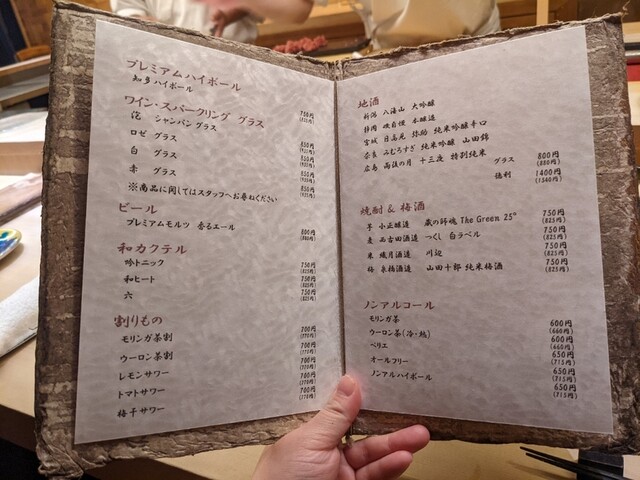 プレミアムハイボール
知多ハイボール 750円 (825円)
ワイン・スパークリング グラス
泡 シャンパン グラス 850円 (935円)
ロゼ グラス 850円 (935円)
白 グラス 850円 (935円)
赤 グラス 850円 (935円)
※商品に関してはスタッフへお尋ねください
ビール
プレミアムモルツ 香るエール 800円 (880円)
和カクテル
吟トニック 750円 (825円)
和ヒート 750円 (825円)
六 750円 (825円)
割りもの
モリンガ茶割 700円 (770円)
ウーロン茶割 700円 (770円)
レモンサワー 700円 (770円)
トマトサワー 700円 (770円)
梅干サワー 700円 (770円)
地酒
新潟 八海山 大吟醸
静岡 磯自慢 本醸造
宮城 日高見 弥助 純米吟醸辛口
奈良 みむろすぎ 純米吟醸 山田錦
広島 雨後の月 十三夜 特別純米
グラス 800円 (880円)
徳利 1400円 (1540円)
焼酎 & 梅酒
芋 小正醸造 蔵の師魂 The Green 25° 750円 (825円)
麦 西吉田酒造 つくし 白ラベル 750円 (825円)
米 繊月酒造 川辺 750円 (825円)
梅 泉橋酒造 山田十郎 純米梅酒 750円 (825円)
ノンアルコール
モリンガ茶 600円 (660円)
ウーロン茶(冷・熱) 600円 (660円)
ペリエ 650円 (715円)
オールフリー 650円 (715円)
ノンアルハイボール 650円 (715円)